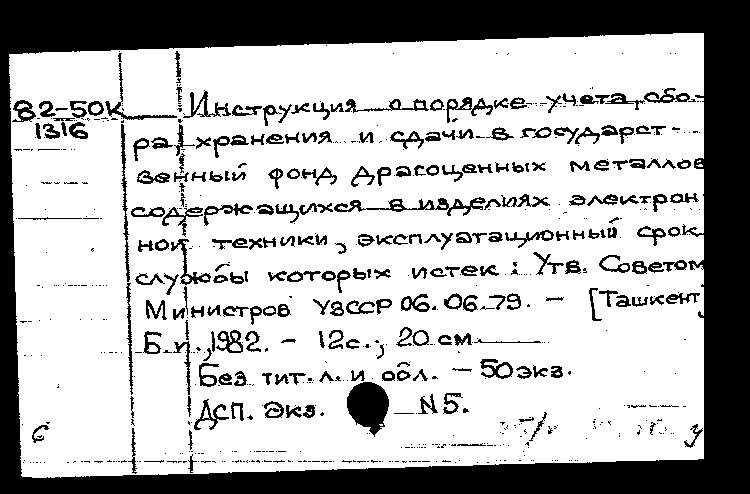 82-50К
1316
Инструкция о порядке учета, сбо-
ра хранения и сдачи в государст-
венный фонд драгоценных металлов
содержащихся в изделиях электрон
ной техники, эксплуатационный срок
службы которых истек: Утв. Советом
Министров УзССР 06.06.79. - [Ташкент]
Б.и., 1982. - 12с.; 20 см.
Без тит. л. и обл. - 50экз.
ДСП. Экз. N5.
с
у